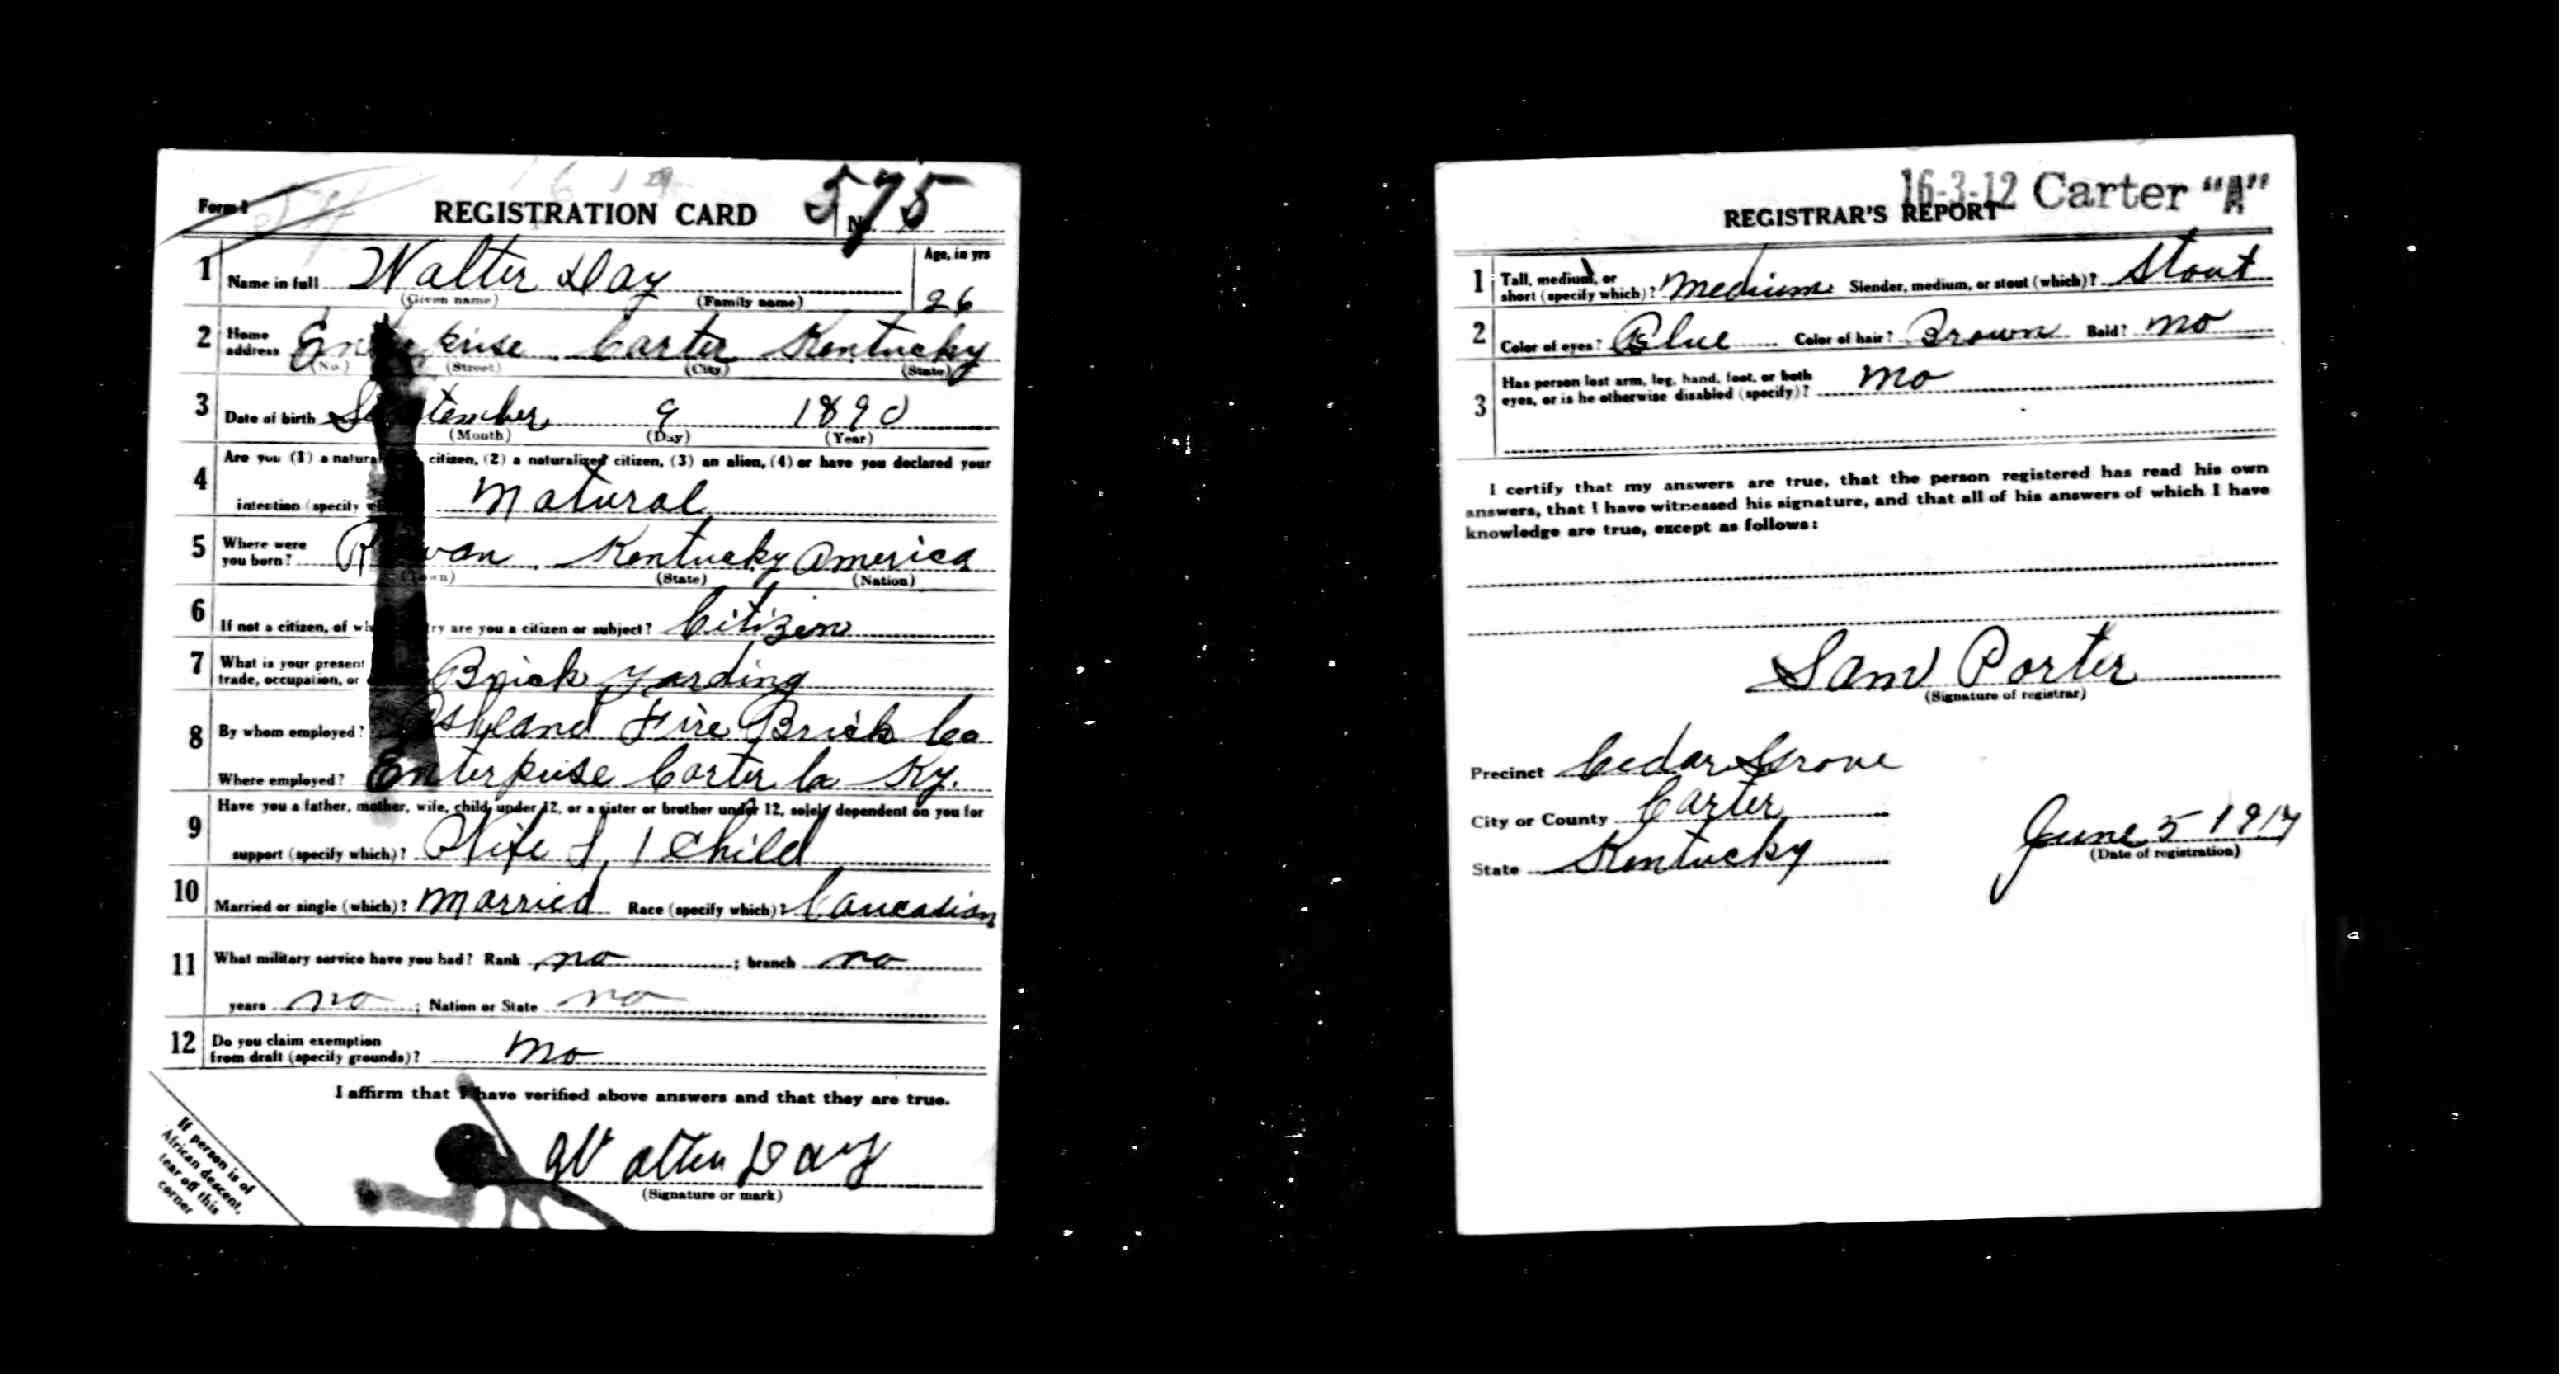 Form 1 REGISTRATION CARD No. 575
1 Name in full Walter Day Age, in yrs
(Given name) (Family name) 26
2 Home address Enterprise Carter Kentucky
(No.) (Street) (City) (State)
3 Date of birth September 9 1890
(Month) (Day) (Year)
4 Are you (1) a natural citizen, (2) a naturalized citizen, (3) an alien, (4) or have you declared your
intention (specify Natural
5 Where were you born? Rowan Kentucky America
(Town) (State) (Nation)
6 If not a citizen, of are you a citizen or subject? Citizen
7 What is your present
trade, occupation, or Brick yarding
8 By whom employed? Ashland Fire Brick Co
Where employed? Enterprise Carter Co Ky.
9 Have you a father, mother, wife, child under 12, or a sister or brother under 12, solely dependent on you for
support (specify which)? Wife & 1 Child
10 Married or single (which)? Married Race (specify which)? Caucasian
11 What military service have you had? Rank no ; branch no
years no ; Nation or State no
12 Do you claim exemption
from draft (specify grounds)? No
I affirm that I have verified above answers and that they are true.
Walter Day
(Signature or mark)
If person is of
African descent,
tear off this
corner
16-3-12 Carter "A"
REGISTRAR'S REPORT
1 Tall, medium, or
short (specify which)? Medium Slender, medium, or stout (which)? Stout
2 Color of eyes? Blue Color of hair? Brown Bald? No
3 Has person lost arm, leg, hand, foot, or both
eyes, or is he otherwise disabled (specify)? No
I certify that my answers are true, that the person registered has read his own
answers, that I have witnessed his signature, and that all of his answers of which I have
knowledge are true, except as follows:
Sam Porter
(Signature of registrar)
Precinct Cedar Grove
City or County Carter
State Kentucky
June 5 1917
(Date of registration)